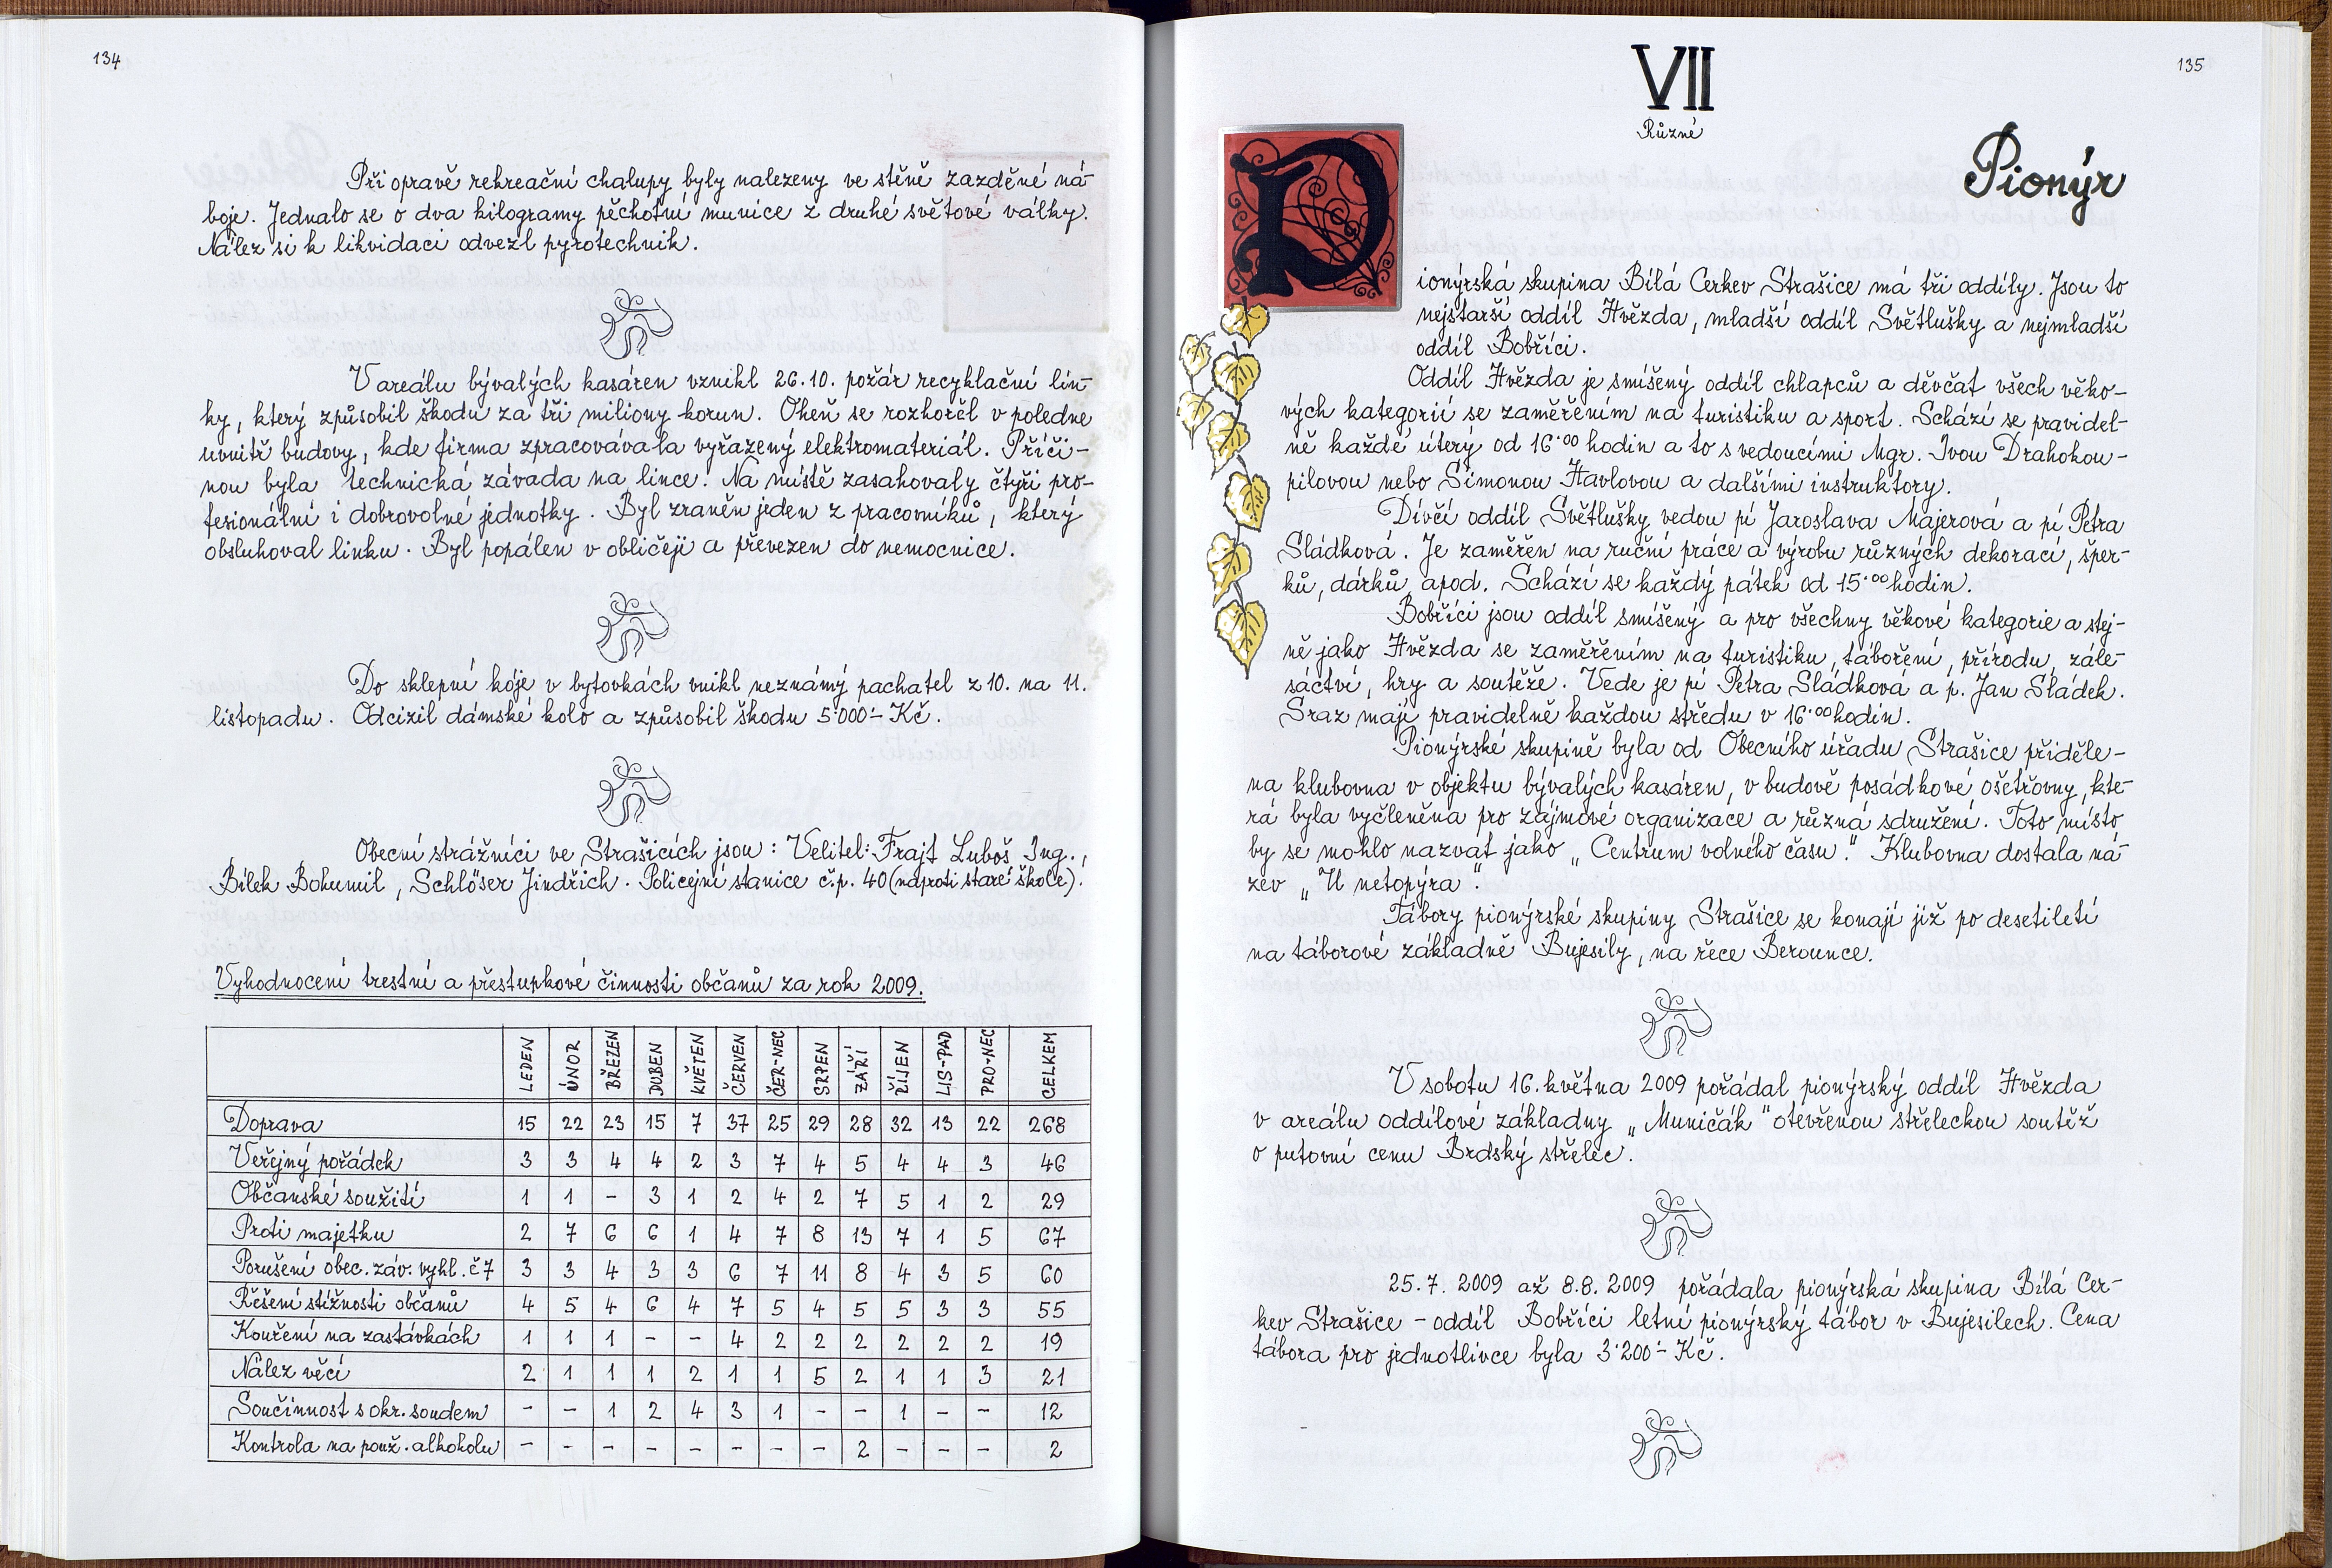 134
Při opravě rekreační chalupy byly nalezeny ve stěně zazděné ná-
boje. Jednalo se o dva kilogramy pěchotní munice z druhé světové války.
Nález si k likvidaci odvezl pyrotechnik.
V areálu bývalých kasáren vznikl 26.10. požár recyklační lin-
ky, který způsobil škodu za tři miliony korun. Oheň se rozhořel v poledne
uvnitř budovy, kde firma zpracovávala vyřazený elektromateriál. Příči-
nou byla technická závada na lince. Na místě zasahovaly čtyři pro-
fesionální i dobrovolné jednotky. Byl zraněn jeden z pracovníků, který
obsluhoval linku. Byl popálen v obličeji a převezen do nemocnice.
Do sklepní kóje v bytovkách vnikl neznámý pachatel z 10. na 11.
listopadu. Odcizil dámské kolo a způsobil škodu 5·000·- Kč.
Obecní strážníci ve Strašicích jsou: Velitel: Frajt Luboš Ing.,
Bílek Bohumil, Schlöser Jindřich. Policejní stanice č.p. 40 (naproti staré škole).
Vyhodnocení trestní a přestupkové činnosti občanů za rok 2009.
LEDEN ÚNOR BŘEZEN DUBEN KVĚTEN ČERVEN ČER-NEC SRPEN ZÁŘÍ ŘÍJEN LIS-PAD PRO-NEC CELKEM
Doprava 15 22 23 15 7 37 25 29 28 32 13 22 268
Veřejný pořádek 3 3 4 4 2 3 7 4 5 4 4 3 46
Občanské soužití 1 1 - 3 1 2 4 2 7 5 1 2 29
Proti majetku 2 7 6 6 1 4 7 8 13 7 1 5 67
Porušení obec. záv. vyhl. č 7 3 3 4 3 3 6 7 11 8 4 3 5 60
Řešení stížnosti občanů 4 5 4 6 4 7 5 4 5 5 3 3 55
Kouření na zastávkách 1 1 1 - - 4 2 2 2 2 2 2 19
Nález věcí 2 1 1 1 2 1 1 5 2 1 1 3 21
Součinnost s okr. soudem - - 1 2 4 3 1 - - 1 - - 12
Kontrola na použ. alkoholu - - - - - - - - 2 - - - 2
135
VII
Různé
Pionýr
Pionýrská skupina Bílá Cerkev Strašice má tři oddíly. Jsou to
nejstarší oddíl Hvězda, mladší oddíl Světlušky a nejmladší
oddíl Bobříci.
Oddíl Hvězda je smíšený oddíl chlapců a děvčat všech věko-
vých kategorií se zaměřením na turistiku a sport. Schází se pravidel-
ně každé úterý od 16·00 hodin a to s vedoucími Mgr. Ivou Drahokou-
pilovou nebo Simonou Havlovou a dalšími instruktory.
Dívčí oddíl Světlušky vedou pí Jaroslava Majerová a pí Petra
Sládková. Je zaměřen na ruční práce a výrobu různých dekorací, šper-
ků, dárků apod. Schází se každý pátek od 15·00 hodin.
Bobříci jsou oddíl smíšený a pro všechny věkové kategorie a stej-
ně jako Hvězda se zaměřením na turistiku, táboření, přírodu, zále-
sáctví, hry a soutěže. Vede je pí Petra Sládková a p. Jan Sládek.
Sraz mají pravidelně každou středu v 16·00 hodin.
Pionýrské skupině byla od Obecního úřadu Strašice přiděle-
na klubovna v objektu bývalých kasáren, v budově posádkové ošetřovny, kte-
rá byla vyčleněna pro zájmové organizace a různá sdružení. Toto místo
by se mohlo nazvat jako „Centrum volného času." Klubovna dostala ná-
zev „U netopýra".
Tábory pionýrské skupiny Strašice se konají již po desetiletí
na táborové základně Bujesily, na řece Berounce.
V sobotu 16. května 2009 pořádal pionýrský oddíl Hvězda
v areálu oddílové základny „Municák" otevřenou střeleckou soutěž
o putovní cenu Brdský střelec.
25.7. 2009 až 8.8. 2009 pořádala pionýrská skupina Bílá Cer-
kev Strašice - oddíl Bobříci letní pionýrský tábor v Bujesilech. Cena
tábora pro jednotlivce byla 3·200·- Kč.